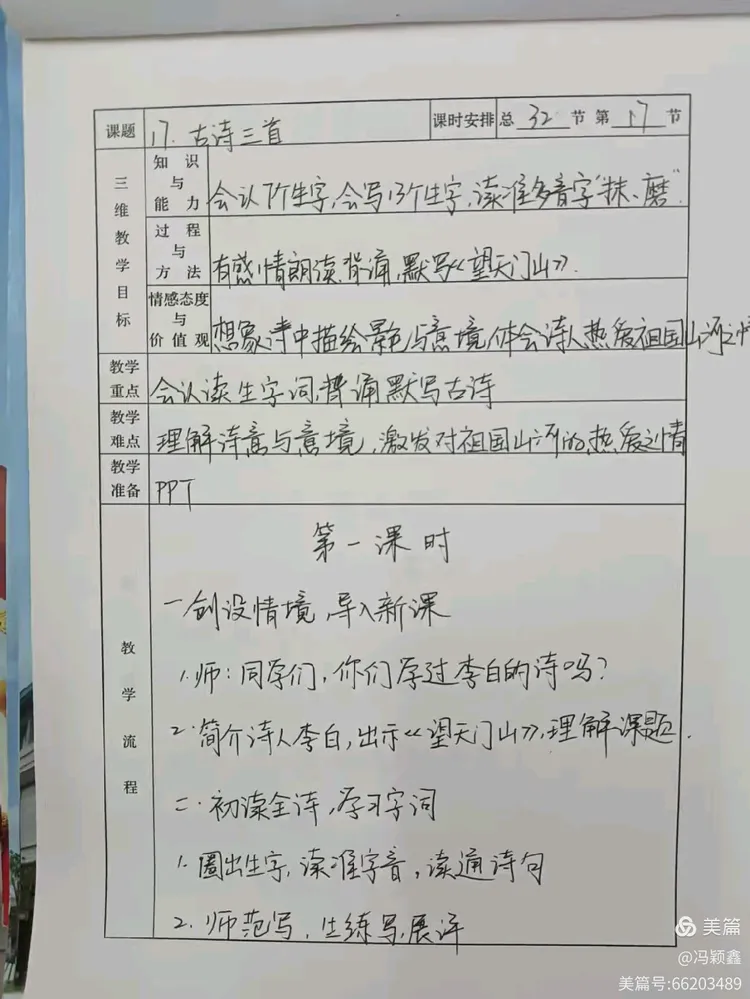 课题 17. 古诗三首 课时安排 总 32 节 第 17 节
三维教学目标
知识与能力 会认7个生字,会写13个生字,读准多音字“抹、磨”.
过程与方法 有感情朗读,背诵,默写《望天门山》.
情感态度与价值观 想象诗中描绘景色与意境,体会诗人热爱祖国山河之情
教学重点 会认读生字词,背诵默写古诗
教学难点 理解诗意与意境,激发对祖国山河的热爱之情
教学准备 PPT
教学流程
第一课时
一创设情境,导入新课
1.师:同学们,你们学过李白的诗吗?
2.简介诗人李白,出示《望天门山》,理解课题.
二.初读全诗,学习字词
1.圈出生字,读准字音,读通诗句
2.师范写,生练写,展评
美篇
@冯颖鑫
美篇号:66203489